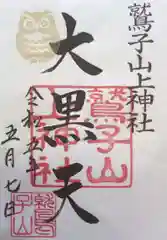 鷲子山上神社
大黒天
令和五年
五月七日
鷲子山
上神社